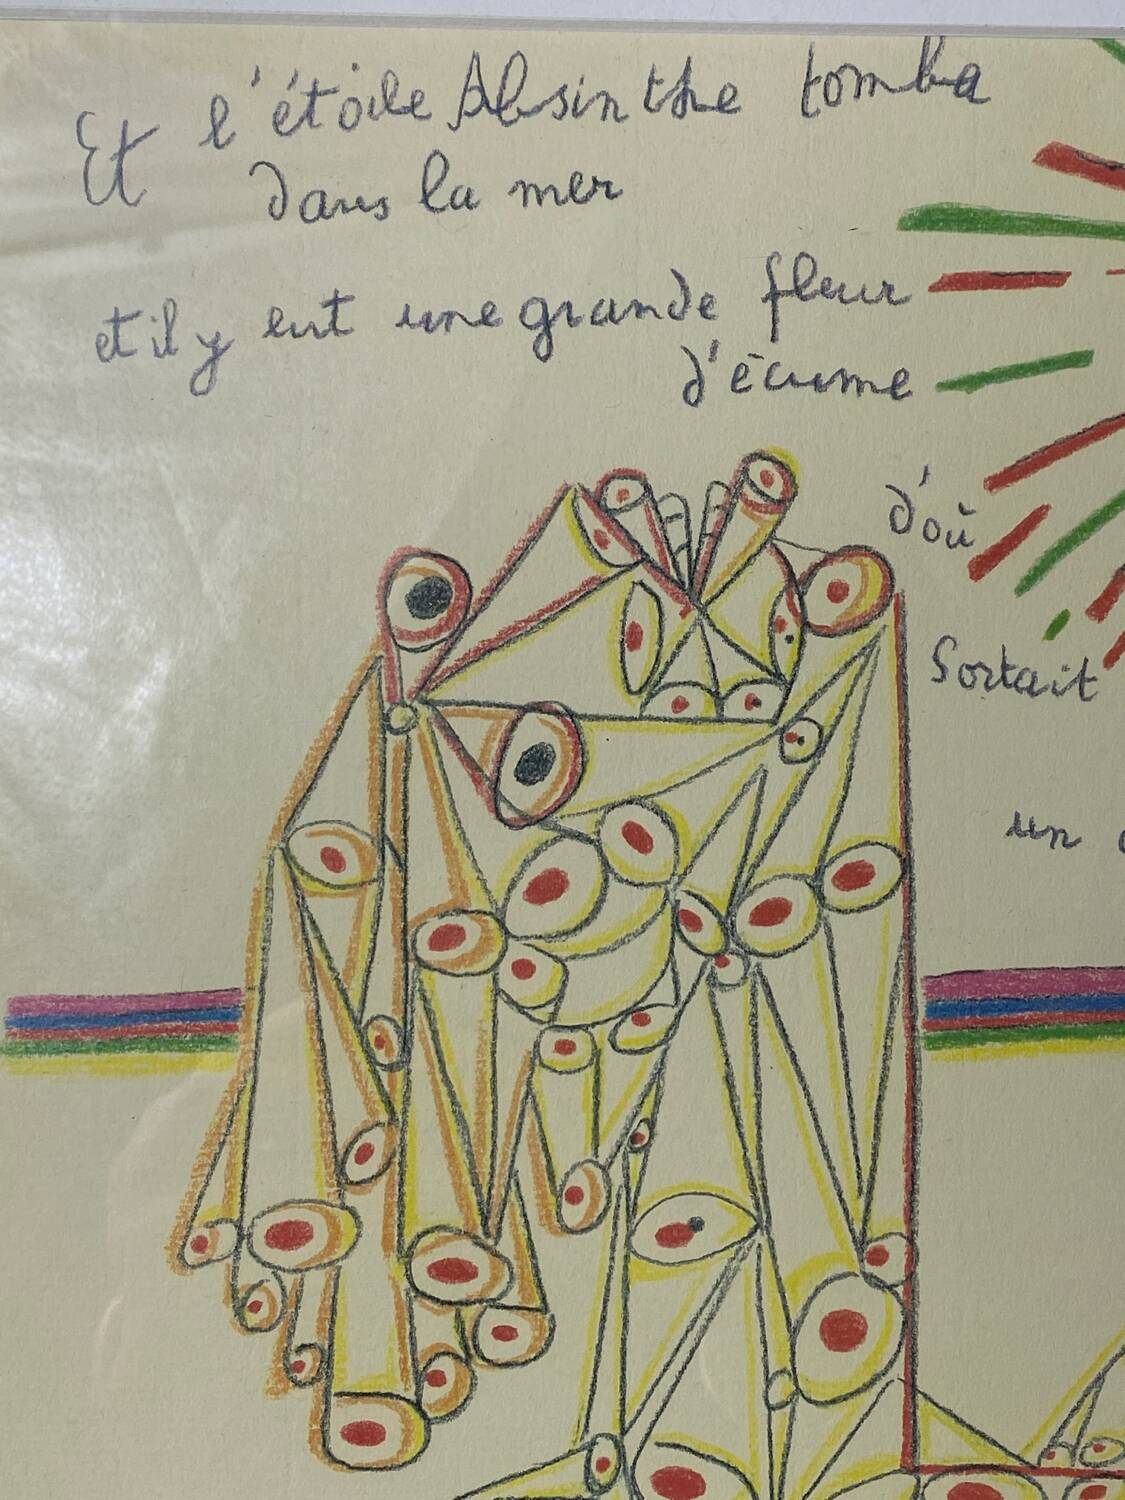 Et l'étoile Absinthe tomba
dans la mer
et il y eut une grande fleur
d'écume
d'où
Sortait
un